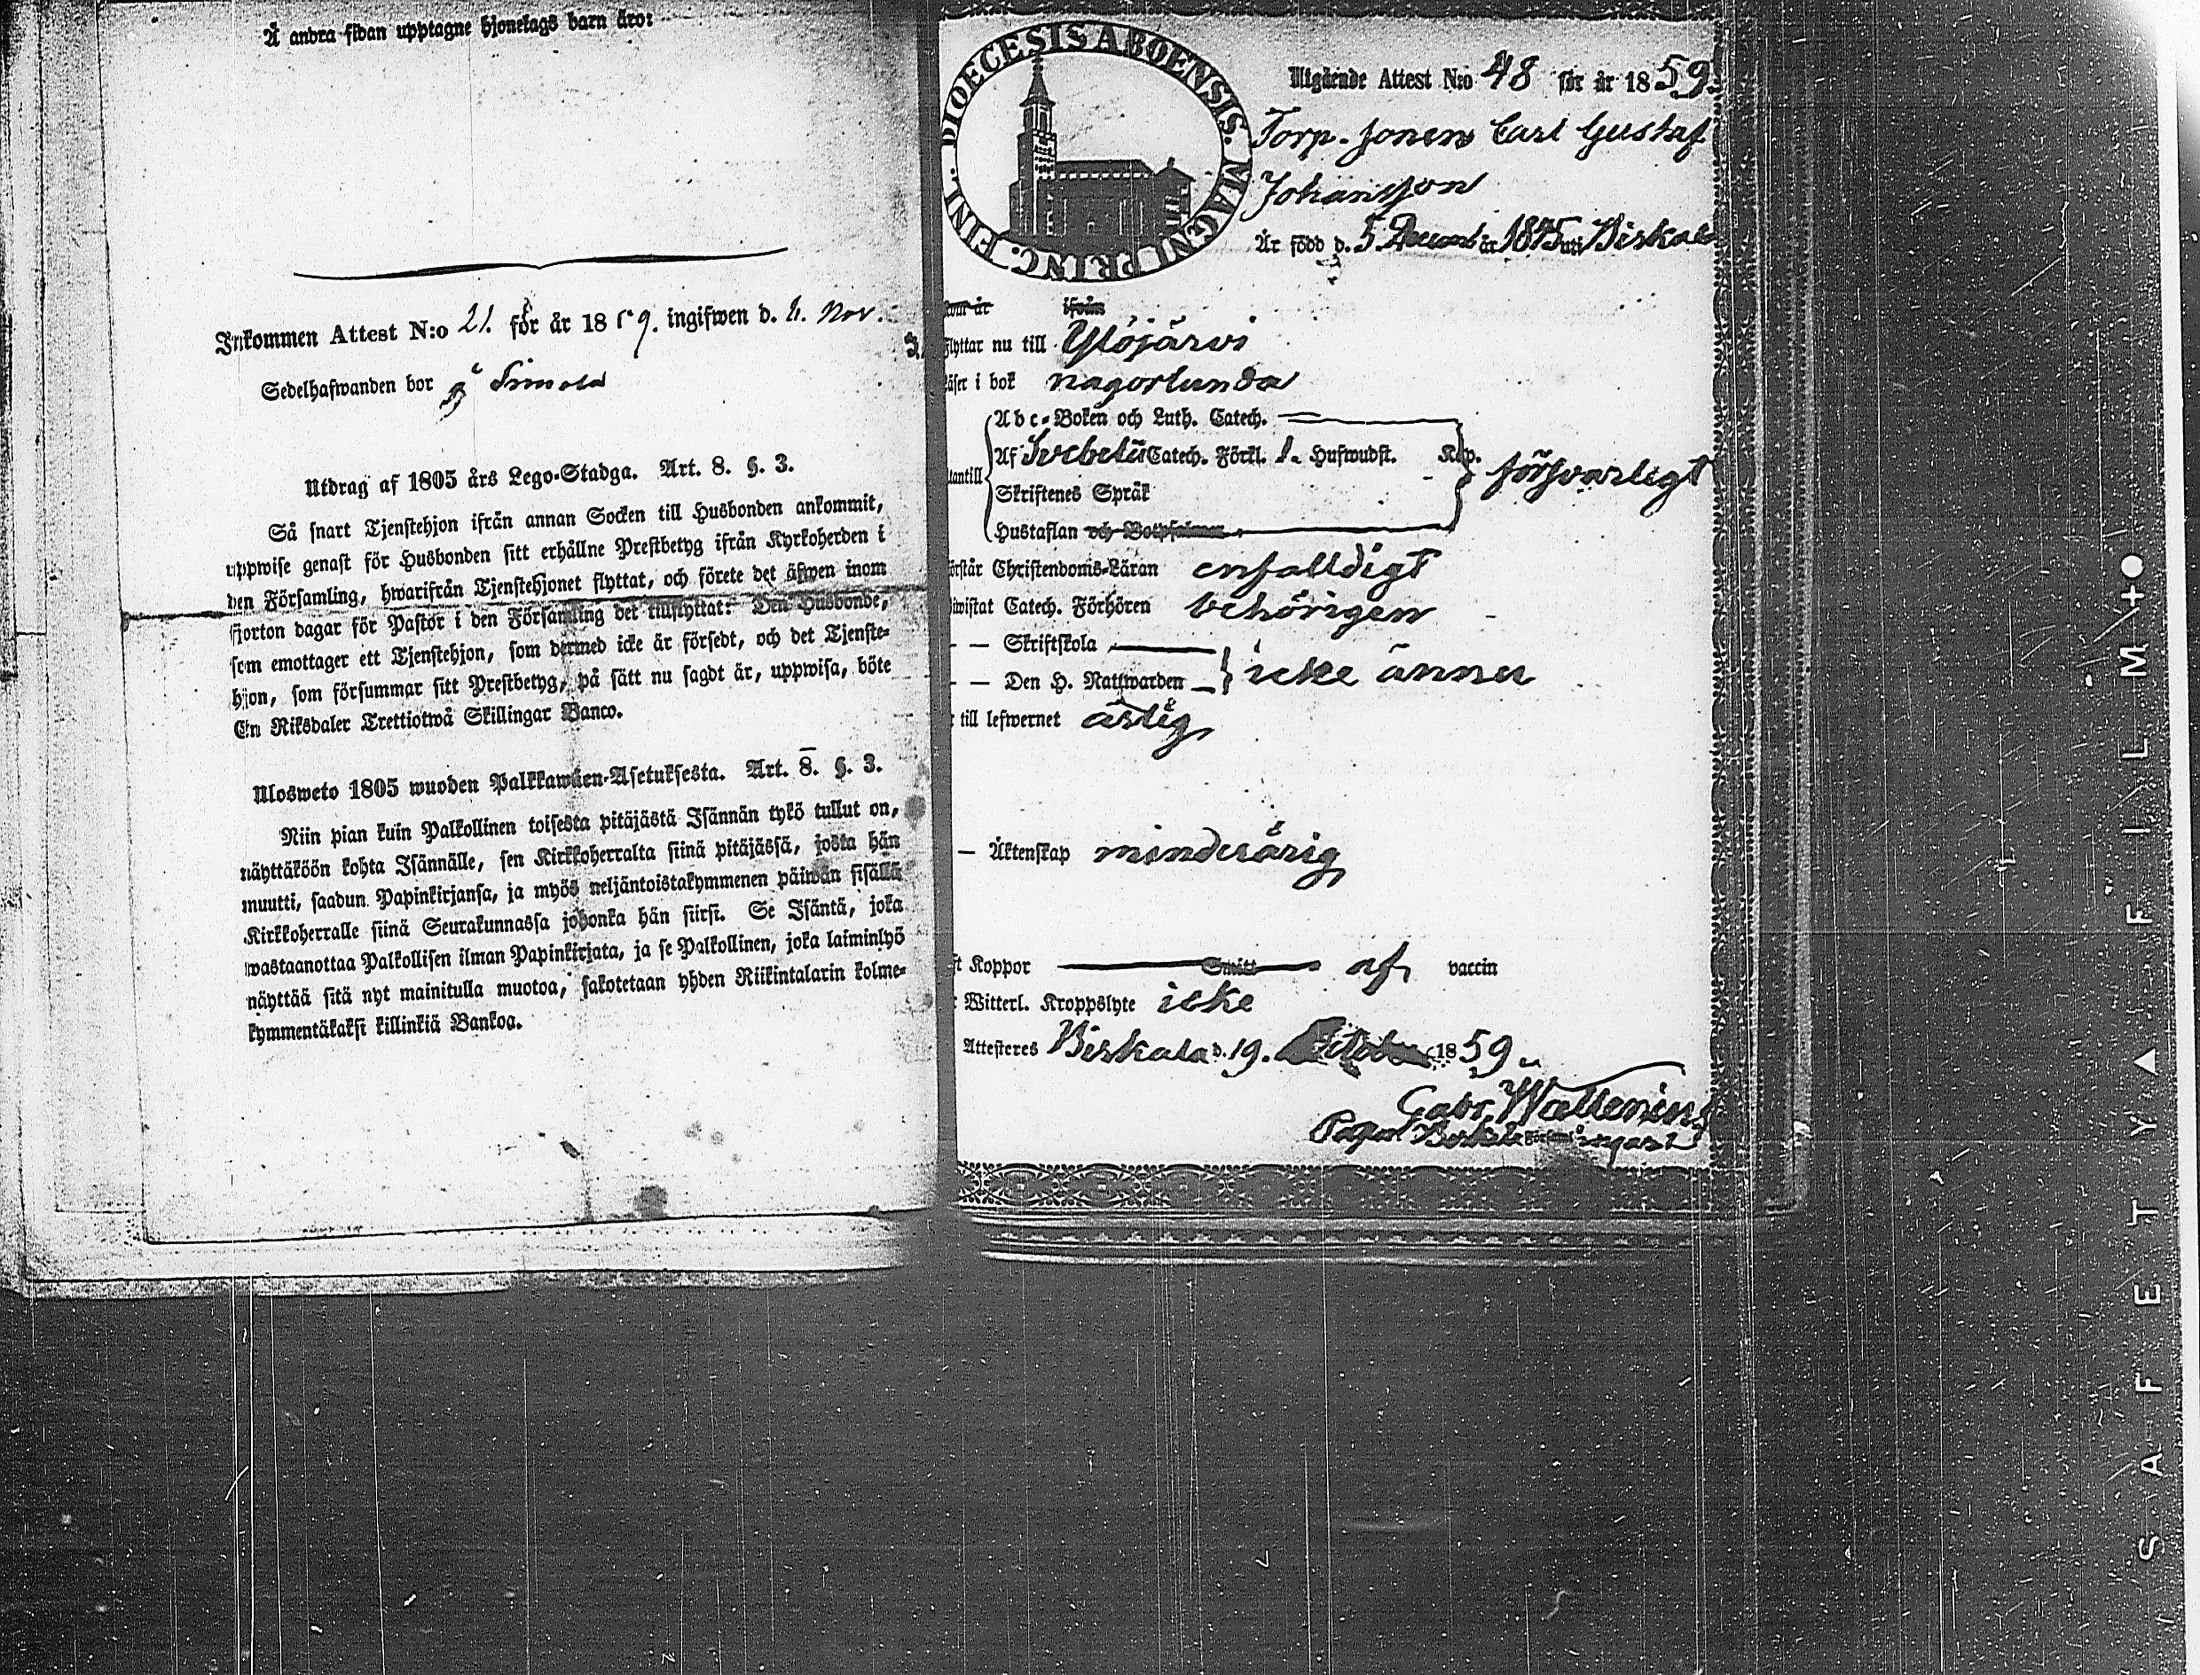 Å andra sidan upptagne hjonelags barn äro:
Inkommen Attest N:o 21. för år 1859. ingifwen d. 6. Nov.
Sedelhafwanden bor på Simola
Utdrag af 1805 års Lego-Stadga. Art. 8. §. 3.
Så snart Tjenstehjon ifrån annan Socken till Husbonden ankommit,
uppwise genast för Husbonden sitt erhållne Prestbetyg ifrån Kyrkoherden i
den Församling, hwarifrån Tjenstehjonet flyttat, och förete det äfwen inom
fjorton dagar för Pastor i den Församling det tillflyttat: Den Husbonde,
som emottager ett Tjenstehjon, som dermed icke är försedt, och det Tjenste-
hjon, som försummar sitt Prestbetyg, på sätt nu sagdt är, uppwisa, böte
En Riksdaler Trettiotwå Skillingar Banco.
Ulosweto 1805 wuoden Palkkawäen-Asetuksesta. Art. 8. §. 3.
Niin pian kuin Palkollinen toisesta pitäjästä Isännän tykö tullut on,
näyttäköön kohta Isännälle, sen Kirkkoherralta siinä pitäjässä, josta hän
muutti, saadun Papinkirjansa, ja myös neljäntoistakymmenen päiwän sisällä
Kirkkoherralle siinä Seurakunnassa johonka hän siirsi. Se Isäntä, joka
wastaanottaa Palkollisen ilman Papinkirjata, ja se Palkollinen, joka laiminlyö
näyttää sitä nyt mainitulla muotoa, sakotetaan yhden Riikintalarin kolme-
kymmentäkaksi killinkiä Bankoa.
DIOECESIS ABOENSIS. MAGNI PRINC. FINL.
Utgående Attest N:o 48 för år 1859.
Torp. sonen Carl Gustaf
Johansson
Är född d. 5 Decemb år 1845 uti Birkala
ifrån
Flyttar nu till Ylöjärvi
Läser i bok någorlunda
Abc-Boken och Luth. Catech.
Af Svebelii Catech. Förkl. 1. Hufwudst. Kap.
utantill försvarligt
Skriftenes Språk
Hustaflan och Botpsalmer
Förstår Christendoms-Läran enfalldigt
Biwistat Catech. Förhören behörigen
— — Skriftskola
— — Den H. Nattwarden icke ännu
till lefwernet ärlig
— Äktenskap minderårig
Koppor Smitt af vaccin
Witterl. Kroppslyte icke
Attesteres Birkala d. 19. October 1859.
Gabr. Wallenius
SAFETY FILM